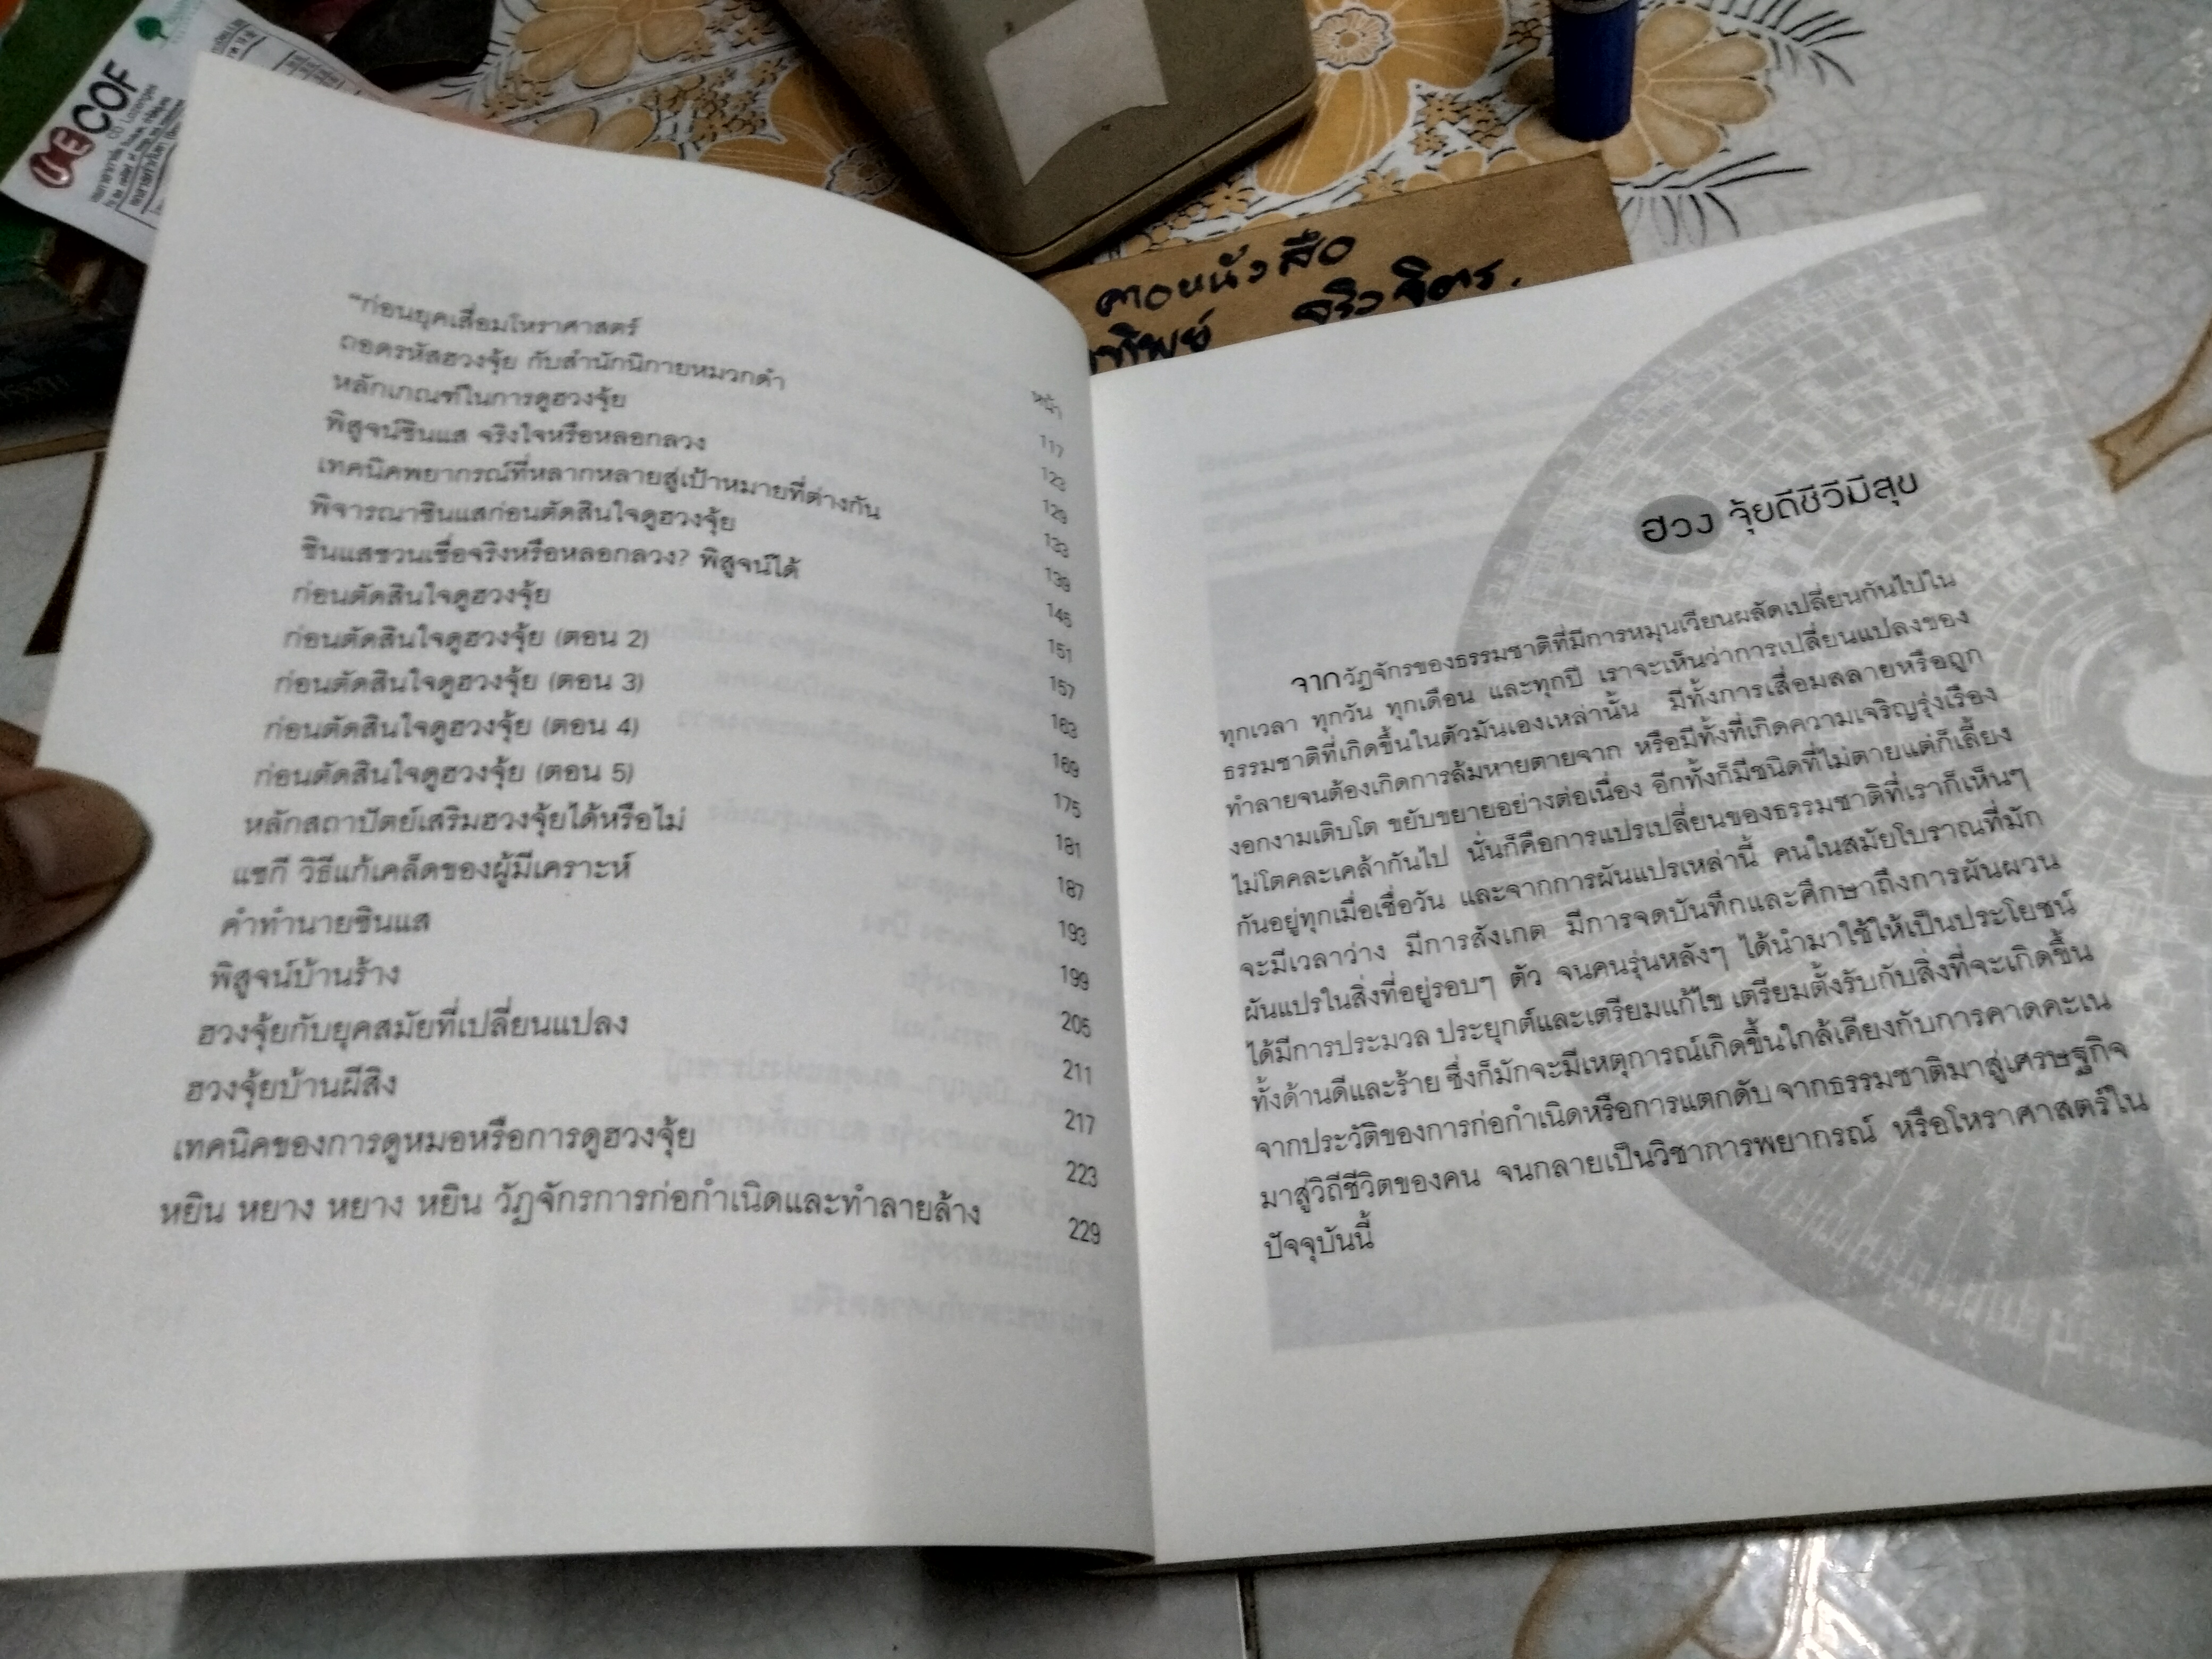 UECOF
คอหนังสือ
ทิพย์ จริวจิตร.
หน้า
"ก่อนยุคเสื่อมโหราศาสตร์ 117
ถอดรหัสฮวงจุ้ย กับสำนักนิกายหมวกดำ 123
หลักเกณฑ์ในการดูฮวงจุ้ย 129
พิสูจน์ซินแส จริงใจหรือหลอกลวง 133
เทคนิคพยากรณ์ที่หลากหลายสู่เป้าหมายที่ต่างกัน 139
พิจารณาซินแสก่อนตัดสินใจดูฮวงจุ้ย 145
ซินแสชวนเชื่อจริงหรือหลอกลวง? พิสูจน์ได้ 151
ก่อนตัดสินใจดูฮวงจุ้ย 157
ก่อนตัดสินใจดูฮวงจุ้ย (ตอน 2) 163
ก่อนตัดสินใจดูฮวงจุ้ย (ตอน 3) 169
ก่อนตัดสินใจดูฮวงจุ้ย (ตอน 4) 175
ก่อนตัดสินใจดูฮวงจุ้ย (ตอน 5) 181
หลักสถาปัตย์เสริมฮวงจุ้ยได้หรือไม่ 187
แซกี วิธีแก้เคล็ดของผู้มีเคราะห์ 193
คำทำนายซินแส 199
พิสูจน์บ้านร้าง 205
ฮวงจุ้ยกับยุคสมัยที่เปลี่ยนแปลง 211
ฮวงจุ้ยบ้านผีสิง 217
เทคนิคของการดูหมอหรือการดูฮวงจุ้ย 223
หยิน หยาง หยาง หยิน วัฏจักรการก่อกำเนิดและทำลายล้าง 229
ฮวง จุ้ยดีชีวีมีสุข
จากวัฏจักรของธรรมชาติที่มีการหมุนเวียนผลัดเปลี่ยนกันไปใน
ทุกเวลา ทุกวัน ทุกเดือน และทุกปี เราจะเห็นว่าการเปลี่ยนแปลงของ
ธรรมชาติที่เกิดขึ้นในตัวมันเองเหล่านั้น มีทั้งการเสื่อมสลายหรือถูก
ทำลายจนต้องเกิดการล้มหายตายจาก หรือมีทั้งที่เกิดความเจริญรุ่งเรือง
งอกงามเติบโต ขยับขยายอย่างต่อเนื่อง อีกทั้งก็มีชนิดที่ไม่ตายแต่ก็เลี้ยง
ไม่โตคละเคล้ากันไป นั่นก็คือการแปรเปลี่ยนของธรรมชาติที่เราก็เห็นๆ
กันอยู่ทุกเมื่อเชื่อวัน และจากการผันแปรเหล่านี้ คนในสมัยโบราณที่มัก
จะมีเวลาว่าง มีการสังเกต มีการจดบันทึกและศึกษาถึงการผันผวน
ผันแปรในสิ่งที่อยู่รอบๆ ตัว จนคนรุ่นหลังๆ ได้นำมาใช้ให้เป็นประโยชน์
ได้มีการประมวล ประยุกต์และเตรียมแก้ไข เตรียมตั้งรับกับสิ่งที่จะเกิดขึ้น
ทั้งด้านดีและร้าย ซึ่งก็มักจะมีเหตุการณ์เกิดขึ้นใกล้เคียงกับการคาดคะเน
จากประวัติของการก่อกำเนิดหรือการแตกดับ จากธรรมชาติมาสู่เศรษฐกิจ
มาสู่วิถีชีวิตของคน จนกลายเป็นวิชาการพยากรณ์ หรือโหราศาสตร์ใน
ปัจจุบันนี้